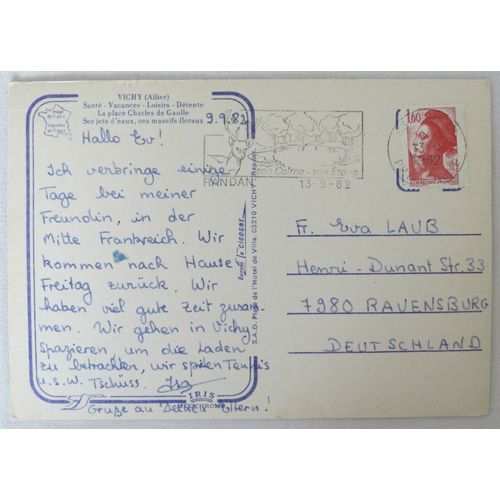 VICHY (Allier)
Santé - Vacances - Loisirs - Détente
La place Charles de Gaulle
Ses jets d'eaux, ses massifs floraux
9.9.82
Hallo Ev!
Ich verbringe einige
Tage bei meiner
Freundin, in der
Mitte Frankreich. Wir
kommen nach Hause
Freitag zurück. Wir
haben viel gute Zeit zusam
men. Wir gehen in Vichy
spazieren, um die Laden
zu betrachten, wir spielen Tennis
u.s.w. Tschüss. Isa
Gruße au Deinen Eltern!
IRIS
S.A.D. Place de l'Hotel de Ville. 03210 VICHY
CIGOGNE
RANDAN
son Calme - son Etang
13-9-82
1,60
Fr. Eva LAUB
Henri-Dunant Str. 33
7980 RAVENSBURG
DEUTSCHLAND